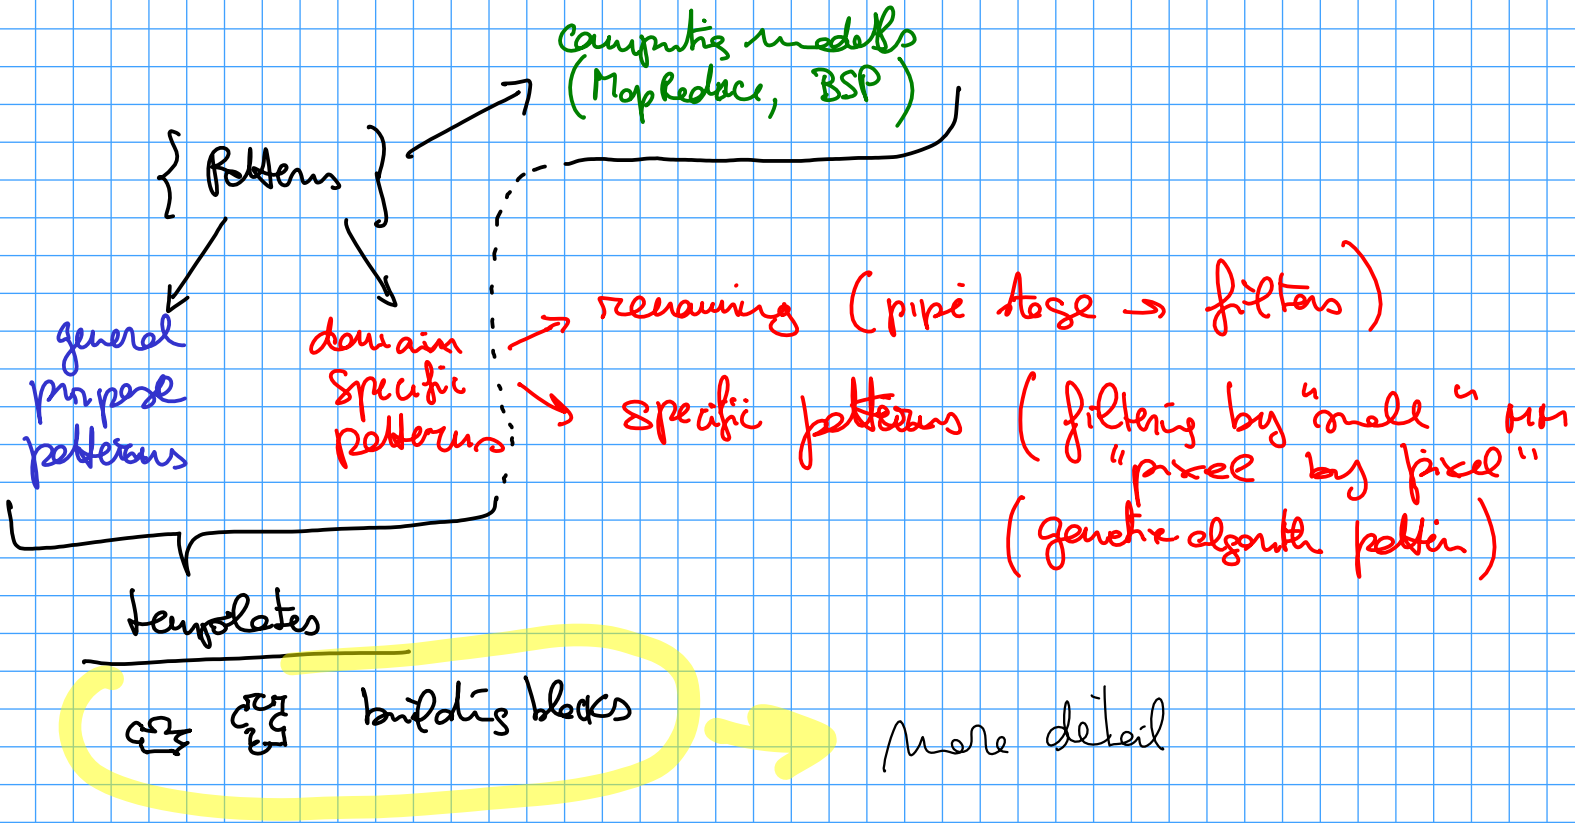 computing models
(MapReduce, BSP)
{ Patterns }
general
purpose
patterns
domain
specific
patterns
renaming (pipe stage → filters)
specific patterns (filtering by "small"
"pixel by pixel"
(genetic algorith pattern)
templates
building blocks
more detail